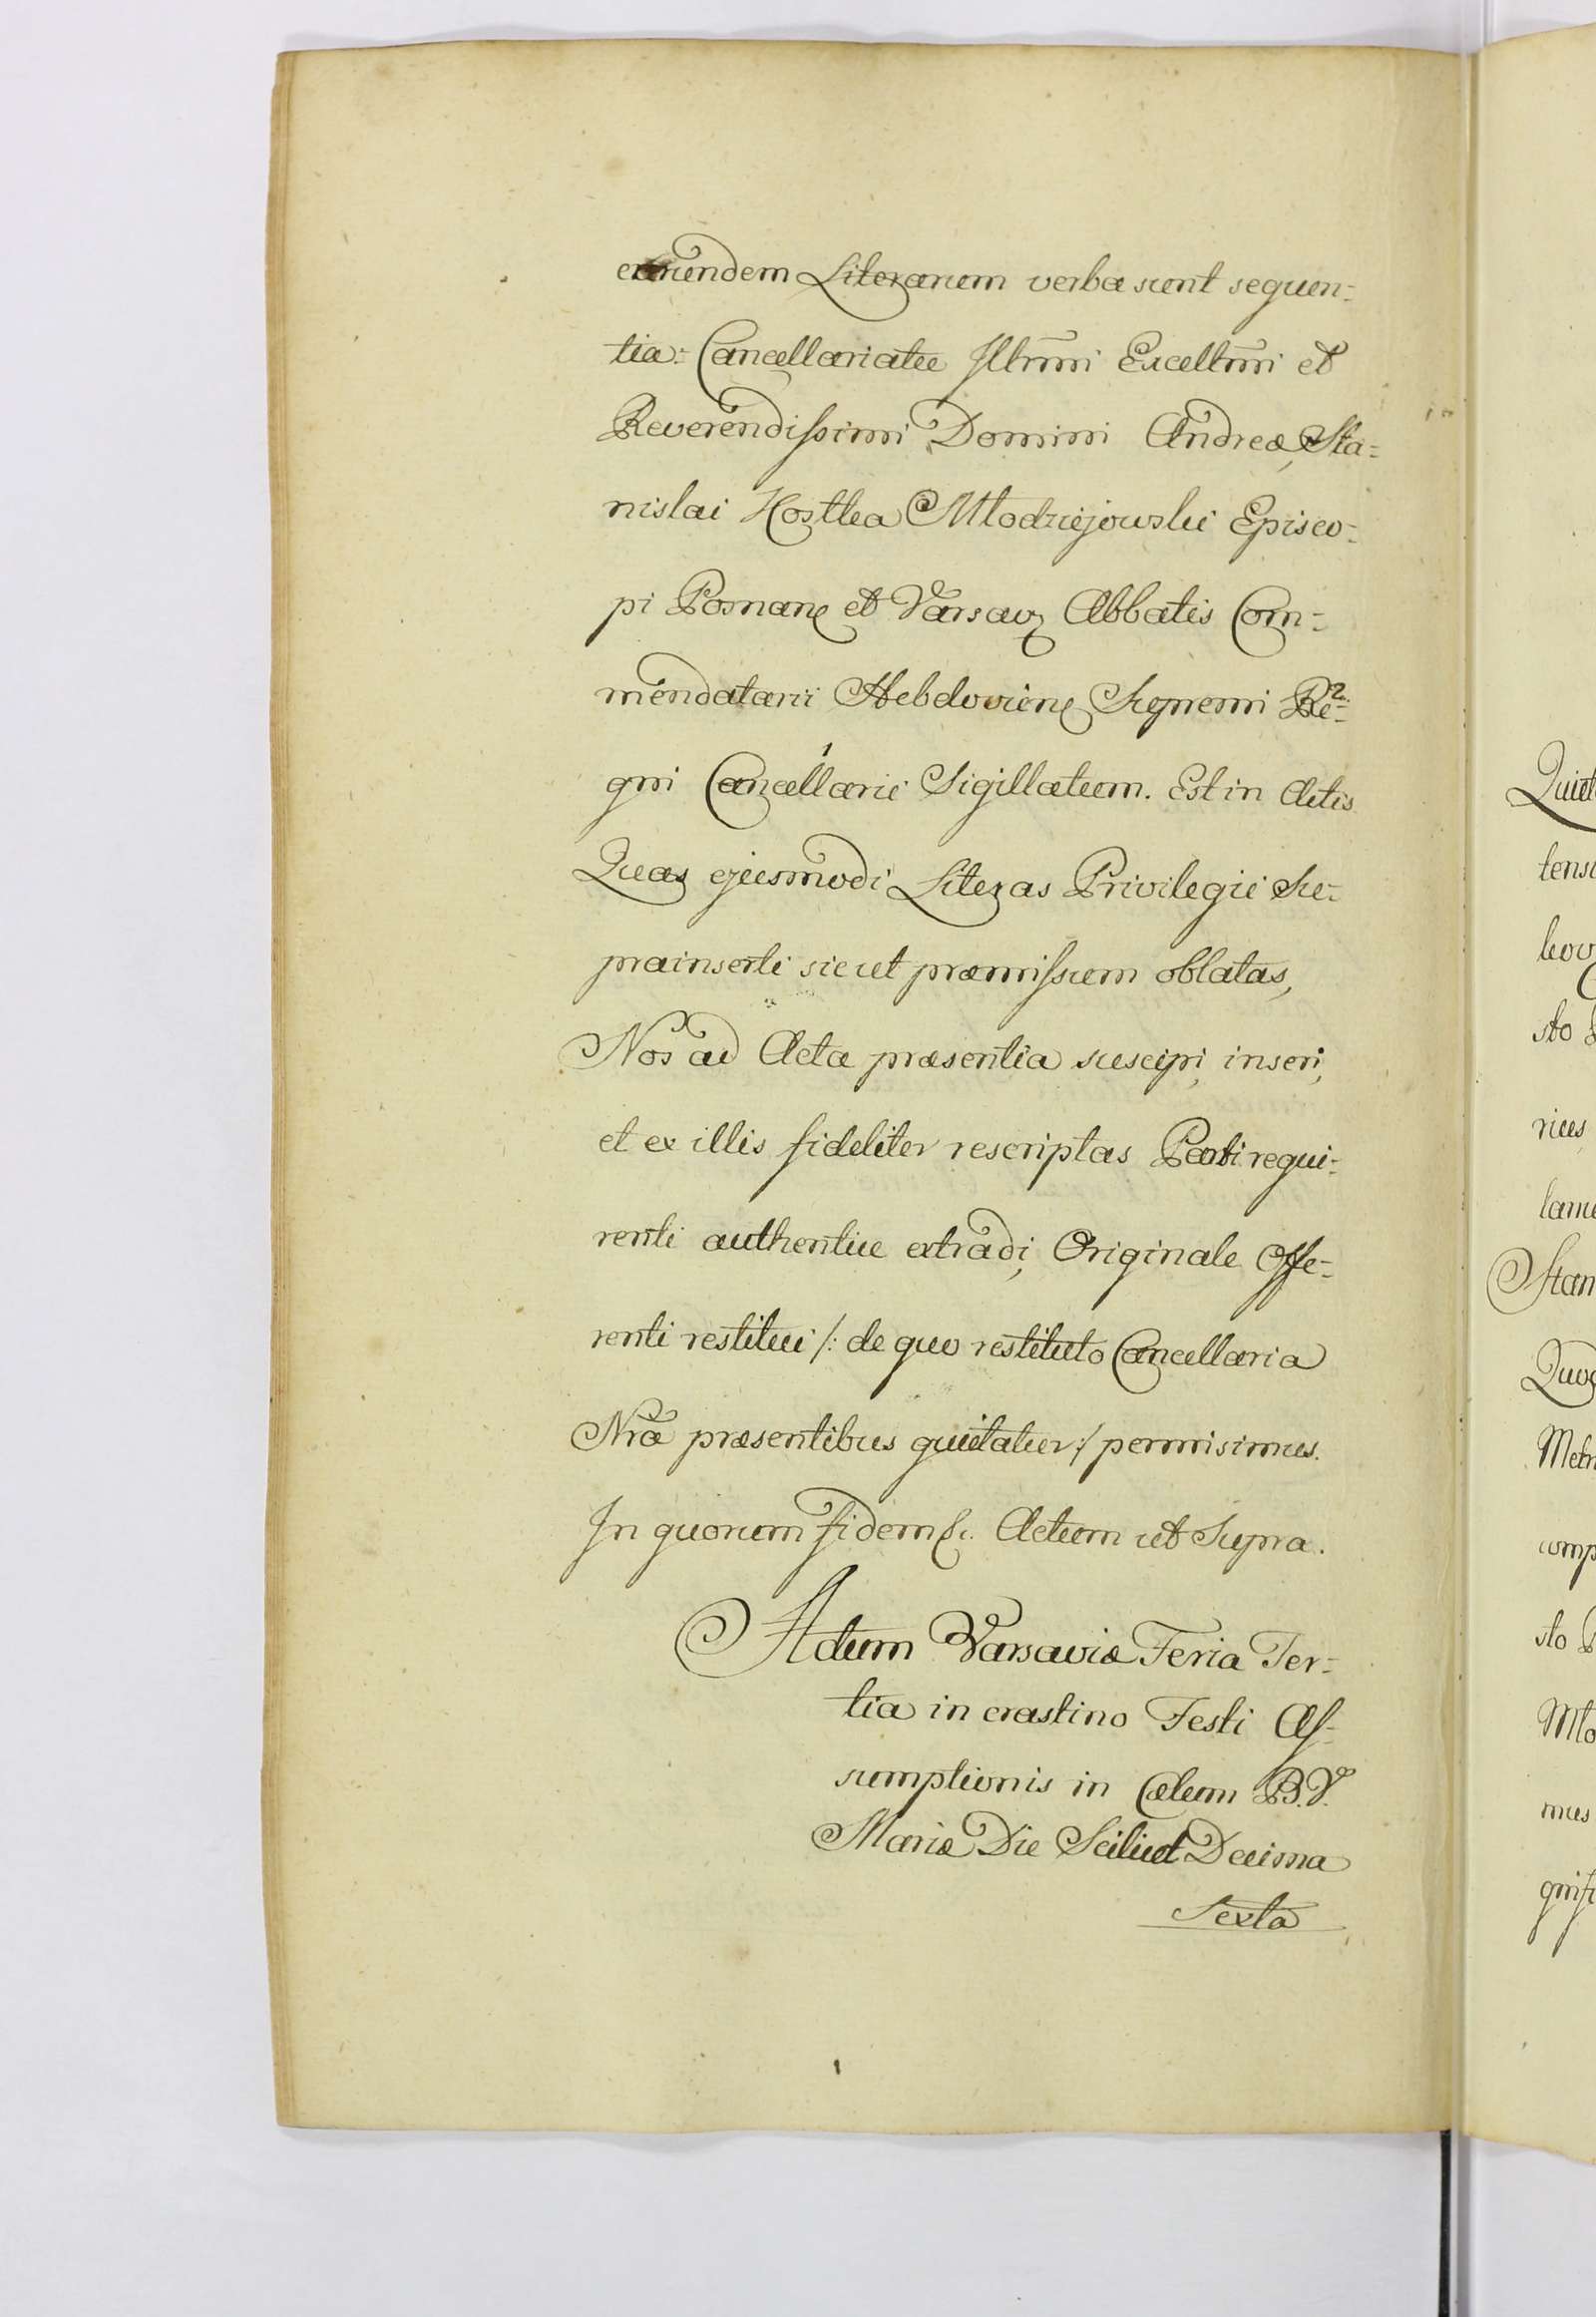 earundem Literarum verba sunt sequen=
tia: Cancellariatu Illmi Excellmi et
Reverendissimi Domini Andreæ, Sta=
nislai Kostka Młodziejowski Episco=
pi Posnane et Varsav Abbatis Com=
mendatarii Hebdoviene Supremi Re=
gni Cancellarii Sigillatum. Est in Actis
Quas ejusmodi Literas Privilegii Su=
prainserti sicut præmissum oblatas,
Nos ad Acta præsentia suscipi, inseri,
et ex illis fideliter rescriptas Parti requi=
renti authentice extradi, Originale Offe=
renti restitui /: de quo restituto Cancellaria
Nra præsentibus quietatur :/ permisimus.
In quorum fidem &c. Actum ut Supra.
Actum Varsaviæ Feria Ter=
tia in crastino Festi As=
sumptionis in Cælum B.V.
Mariæ Die Scilicet Decima
Sexta
Quiet
tens
kov
sto
rius
lame
Stan
Quo
Metr
comp
sto
Mło
mus
gnif